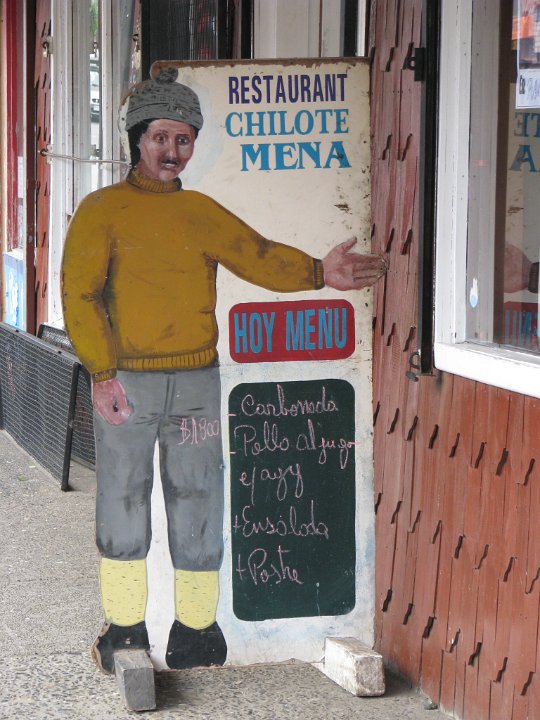 RESTAURANT
CHILOTE
MENA
HOY MENU
$1900
- Carbonada
- Pollo al jugo
c/ayy
+ Ensalada
+ Postre